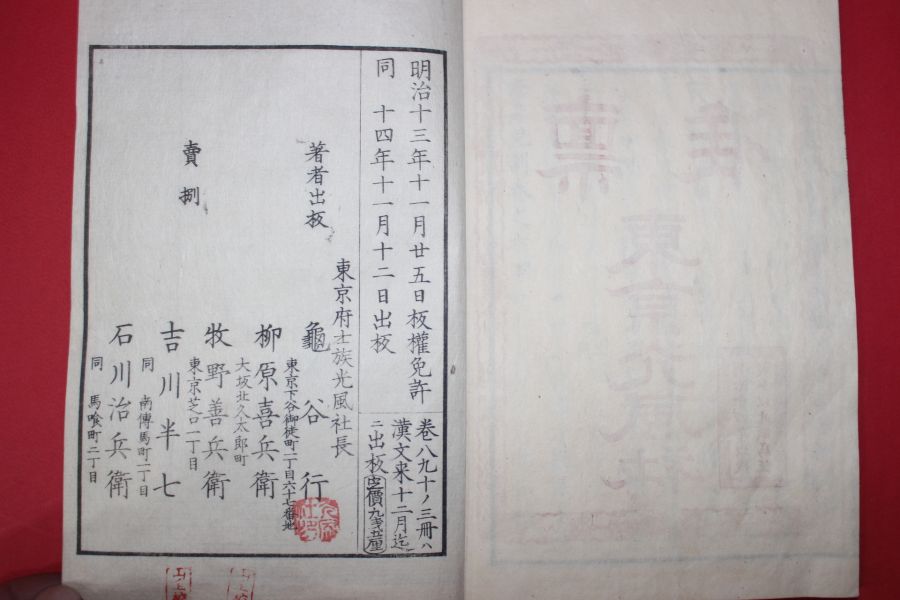 明治十三年十一月廿五日板權免許
同　十四年十一月十二日出板
卷八九十ノ三冊ハ
漢文来十二月迄
ニ出板
定價九
東京府士族光風社長
著者出板
龜谷行
東京下谷御徒町二丁目六十七番地
賣捌
柳原喜兵衛
大坂北久太郎町
牧野善兵衛
東京芝口一丁目
吉川半七
同　南傳馬町一丁目
石川治兵衛
同　馬喰町二丁目